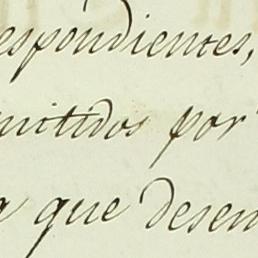 espondientes,
mitidos por
a que desem